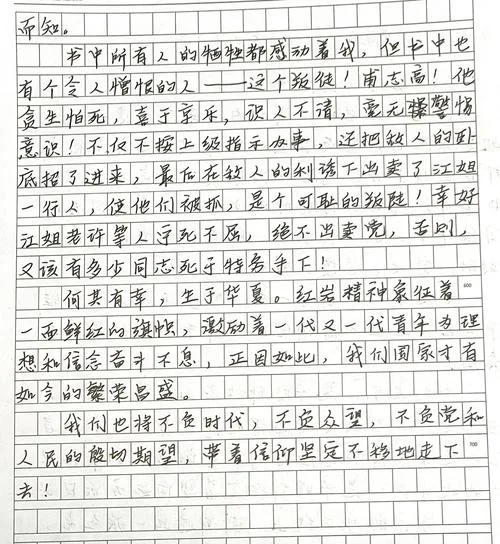 而知。
书中所有人的牺牲都感动着我，但书中也
有个令人憎恨的人——这个叛徒！甫志高！他
贪生怕死，喜于享乐，识人不清，毫无警惕
意识！不仅不按上级指示办事，还把敌人的卧
底招了进来，最后在敌人的利诱下出卖了江姐
一行人，使他们被抓，是个可耻的叛徒！幸好
江姐老许等人宁死不屈，绝不出卖党，否则，
又该有多少同志死于特务手下！
何其有幸，生于华夏。红岩精神象征着
600
一面鲜红的旗帜，激励着一代又一代青年为理
想和信念奋斗不息，正因如此，我们国家才有
如今的繁荣昌盛。
我们也将不负时代，不负众望，不负党和
人民的殷切期望，带着信仰坚定不移地走下
700
去！